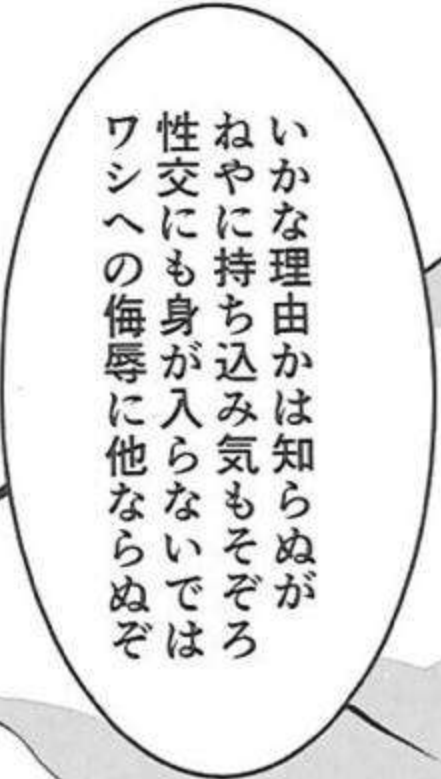 いかな理由かは知らぬが
ねやに持ち込み気もそぞろ
性交にも身が入らないでは
ワシへの侮辱に他ならぬぞ